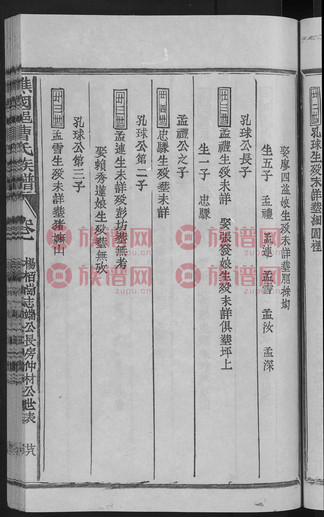 生歿未詳葬湘圓裡
娶廖四益娘生歿未詳葬
生五子　孟禮　孟連　孟雪　孟汝　孟深
孔球公長子
廿三世
孟禮生歿未詳　娶張發娘生歿未詳俱葬坪上
生一子　忠騵
孟禮公之子
廿四世
忠騵生歿葬未詳
孔球公第二子
廿三世
孟連生未詳歿彭坊葬無考
娶賴秀蓮娘生歿葬無攷
孔球公第三子
廿三世
孟雪生歿未詳葬
譙國邑曹氏族譜
卷
楊梅崗志端公長房仲材公世表
族谱网
zupu.cn
族谱网
zupu.cn
族谱网
zupu.cn
族谱网
zupu.cn